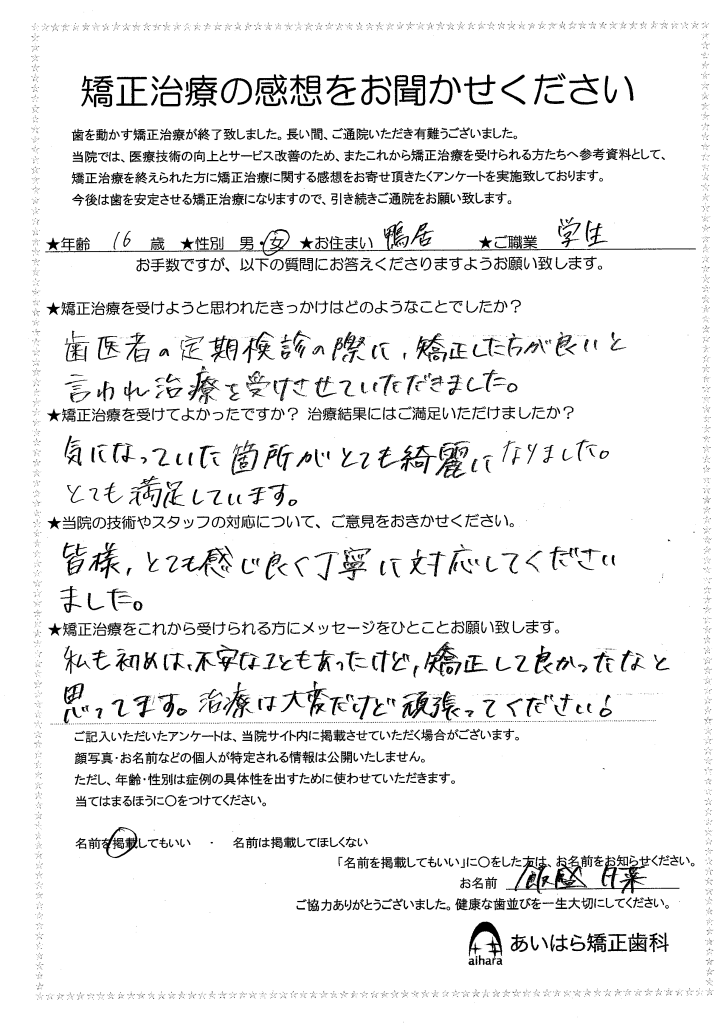 矯正治療の感想をお聞かせください
歯を動かす矯正治療が終了致しました。長い間、ご通院いただき有難うございました。
当院では、医療技術の向上とサービス改善のため、またこれから矯正治療を受けられる方たちへ参考資料として、
矯正治療を終えられた方に矯正治療に関する感想をお寄せ頂きたくアンケートを実施致しております。
今後は歯を安定させる矯正治療になりますので、引き続きご通院をお願い致します。
★年齢 16 歳 ★性別 男・女 ★お住まい 鴨居 ★ご職業 学生
お手数ですが、以下の質問にお答えくださりますようお願い致します。
★矯正治療を受けようと思われたきっかけはどのようなことでしたか？
歯医者の定期検診の際に、矯正した方が良いと
言われ治療を受けさせていただきました。
★矯正治療を受けてよかったですか？ 治療結果にはご満足いただけましたか？
気になっていた箇所がとても綺麗になりました。
とても満足しています。
★当院の技術やスタッフの対応について、ご意見をおきかせください。
皆様、とても感じ良く丁寧に対応してください
ました。
★矯正治療をこれから受けられる方にメッセージをひとことお願い致します。
私も初めは、不安なこともあったけど、矯正して良かったなと
思ってます。治療は大変だけど頑張ってください！
ご記入いただいたアンケートは、当院サイト内に掲載させていただく場合がございます。
顔写真・お名前などの個人が特定される情報は公開いたしません。
ただし、年齢・性別は症例の具体性を出すために使わせていただきます。
当てはまるほうに〇をつけてください。
名前を掲載してもいい ・ 名前は掲載してほしくない
「名前を掲載してもいい」に〇をした方は、お名前をお知らせください。
お名前
ご協力ありがとうございました。健康な歯並びを一生大切にしてください。
aihara あいはら矯正歯科